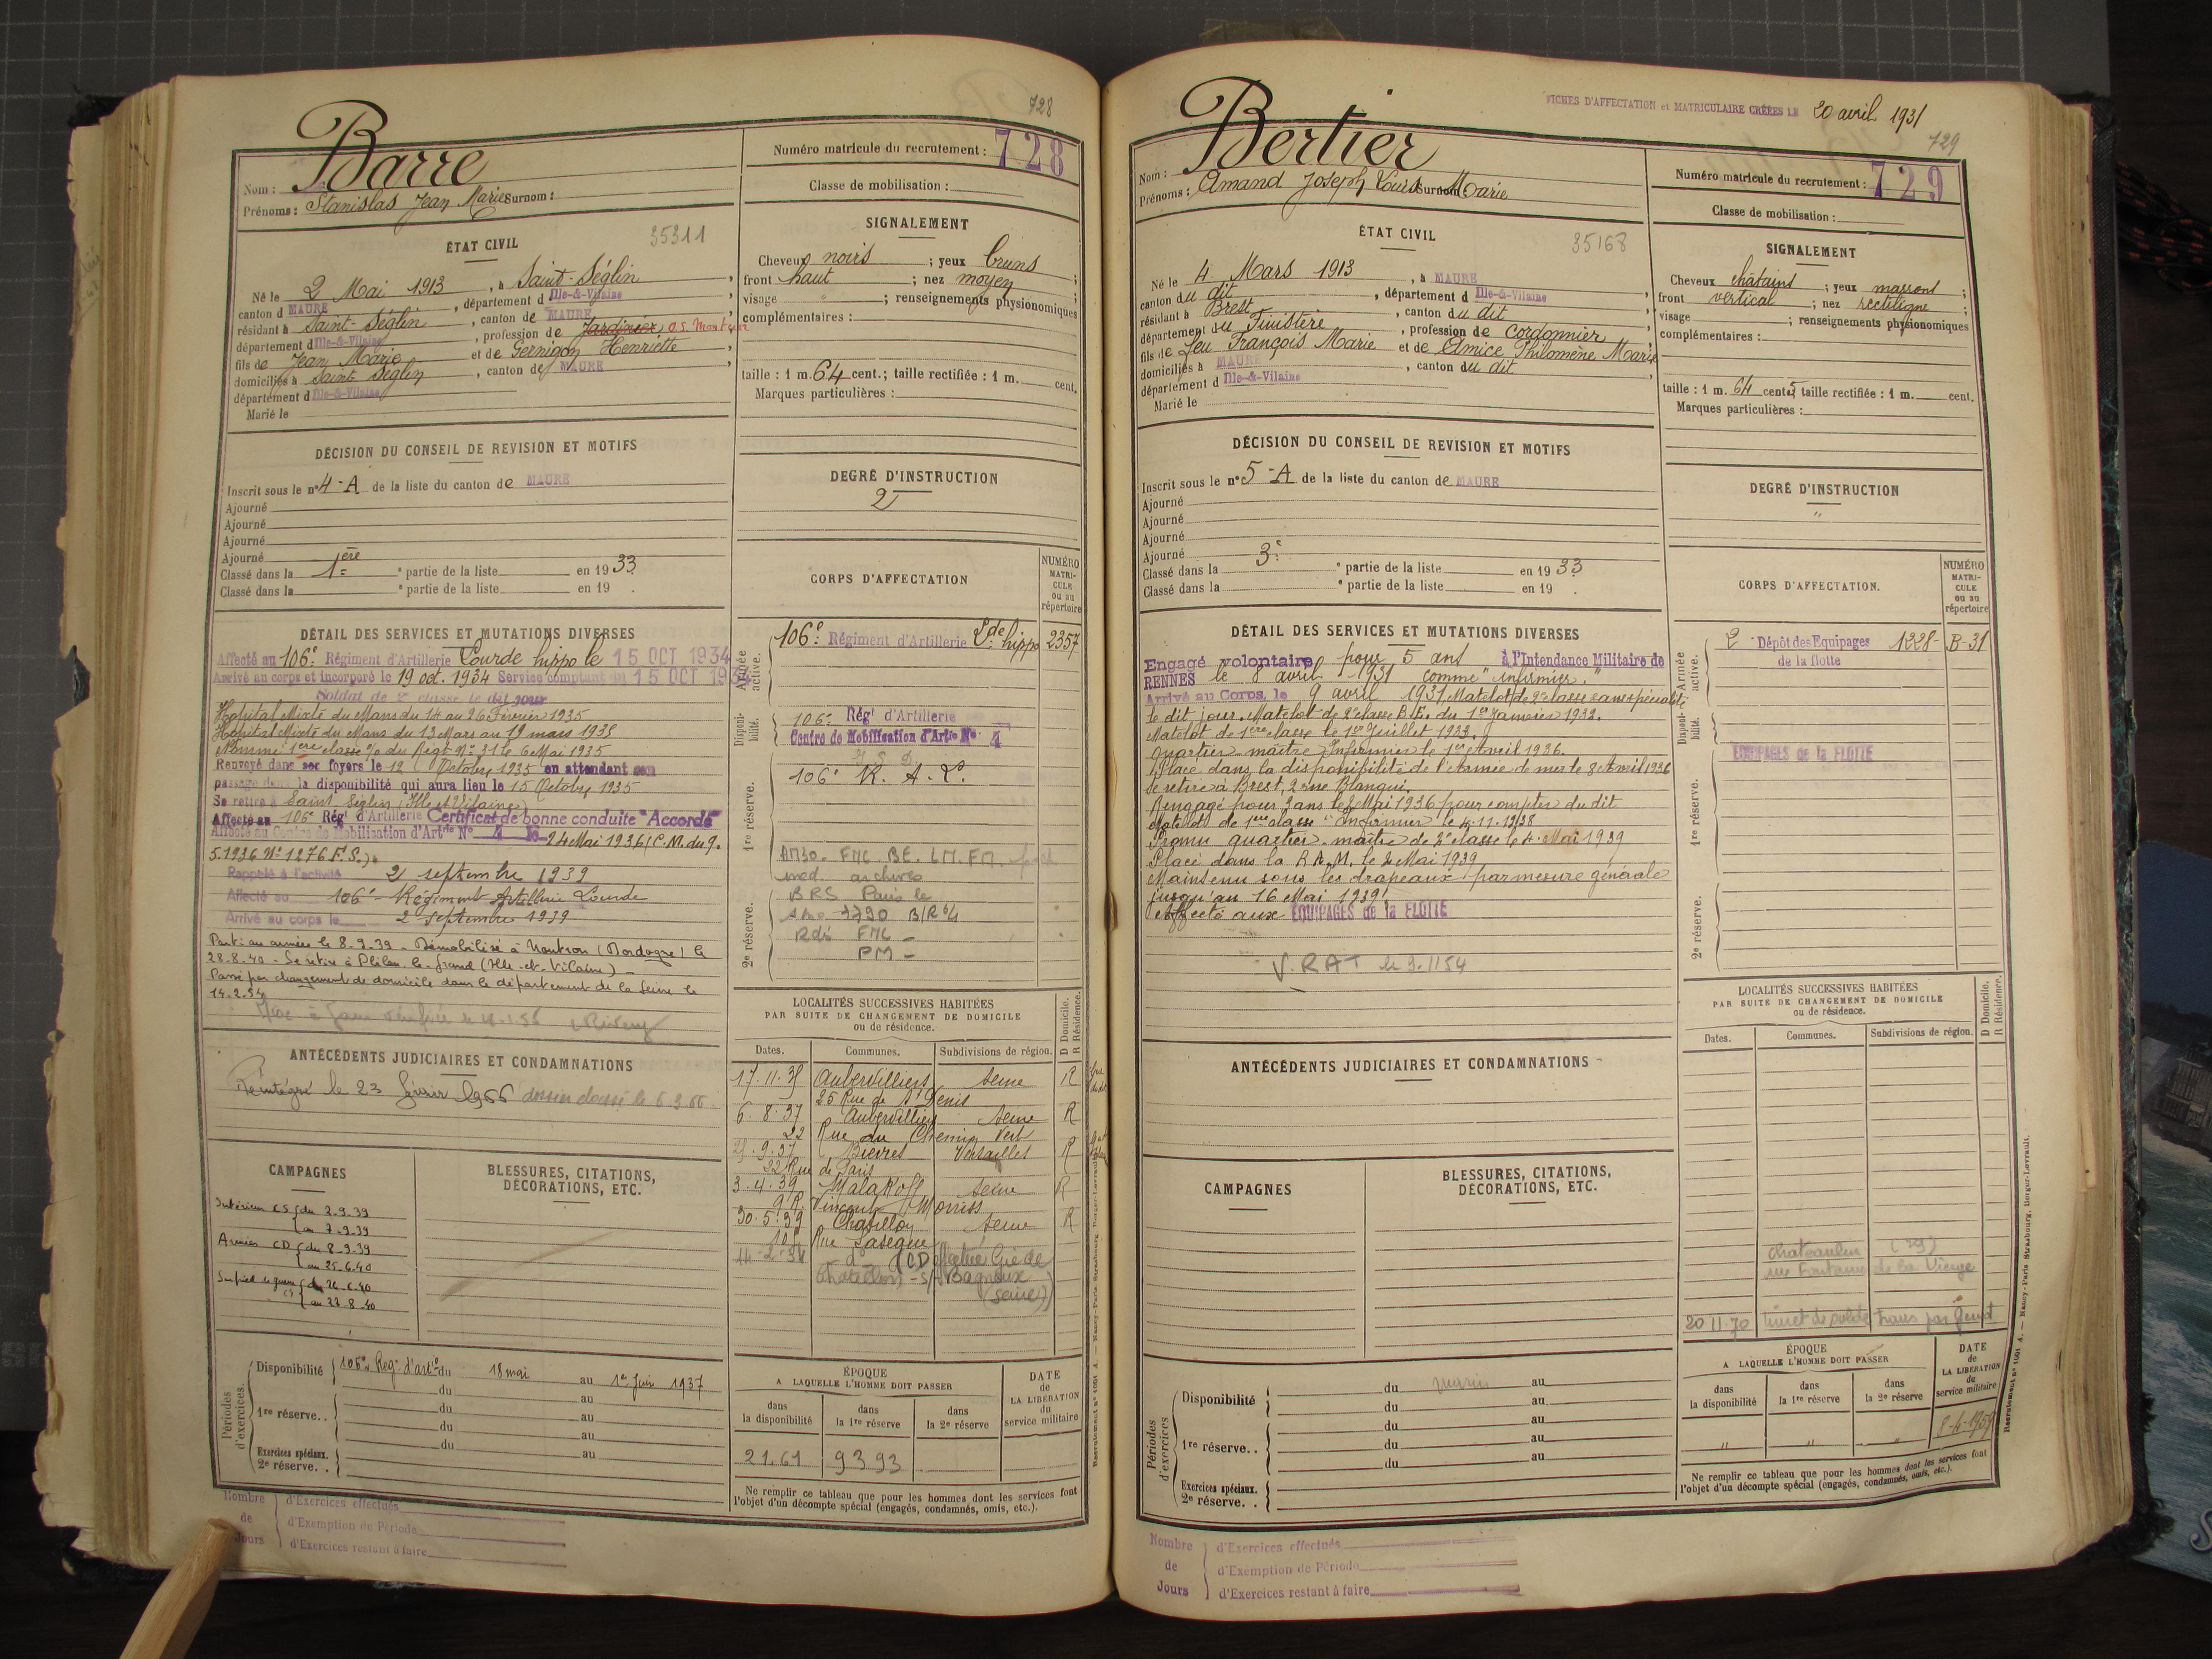 728
Barre
Nom :
Prénoms : Stanislas Jean Marie Surnom :
Numéro matricule du recrutement : 728
Classe de mobilisation :
ÉTAT CIVIL
35311
Né le 2 Mai 1913, à Saint-Séglin,
canton d MAURE, département d Ille-&-Vilaine
résidant à Saint-Séglin, canton de MAURE,
département d Ille-&-Vilaine, profession de Jardinier O.S.
fils de Jean Marie et de Gernigon Henriette,
domiciliés à Saint Séglin, canton de MAURE
département d Ille-&-Vilaine
Marié le
SIGNALEMENT
Cheveux noirs ; yeux bruns ;
front haut ; nez moyen ;
visage " ; renseignements physionomiques
complémentaires :
taille : 1 m. 64 cent. ; taille rectifiée : 1 m. cent.
Marques particulières :
DÉCISION DU CONSEIL DE REVISION ET MOTIFS
Inscrit sous le n° 4-A de la liste du canton de MAURE
Ajourné
Ajourné
Ajourné
Ajourné
Classé dans la 1ère e partie de la liste en 1933.
Classé dans la e partie de la liste en 19 .
DEGRÉ D'INSTRUCTION
2
CORPS D'AFFECTATION
NUMÉRO MATRI-CULE ou au répertoire
Armée active.
106e Régiment d'Artillerie Lde hippo 2357
Disponi-bilité.
106e Régt d'Artillerie
Centre de Mobilisation d'Artie No 4
1re réserve.
106e R. A. L.
med. archives
BRS Paris le
2e réserve.
PM -
DÉTAIL DES SERVICES ET MUTATIONS DIVERSES
Affecté au 106e Régiment d'Artillerie Lourde hippo le 15 OCT 1934
Arrivé au corps et incorporé le 19 oct. 1934 Service comptant du 15 OCT 1934
Soldat de 2e classe le dit jour
Hôpital Mixte du Mans du 14 au 26 Février 1935
Hôpital Mixte du Mans du 13 Mars au 19 mars 1935
Nommé 1ère classe % du Régt No 31 le 6 Mai 1935
Renvoyé dans ses foyers le 12 Octobre 1935 en attendant son
passage dans la disponibilité qui aura lieu le 15 Octobre 1935
Se retire à Saint Séglin (Ille et Vilaine)
Affecté au 106e Régt d'Artillerie Certificat de bonne conduite "Accordé"
Affecté au Centre de Mobilisation d'Artie No 4 le 24 Mai 1936 (C.M. du 9.
5.1936 No 1276 F.S.).
Rappelé à l'activité 2 septembre 1939
Affecté au 106e Régiment Artillerie Lourde
Arrivé au corps le 2 septembre 1939
Parti au armées le 8-9-39 - Démobilisé à Nontron (Dordogne) le
28.8.40 - Se retire à Plélan-le-Grand (Ille-et-Vilaine) -
Passé par changement de domicile dans le département de la Seine le
14.2.54
ANTÉCÉDENTS JUDICIAIRES ET CONDAMNATIONS
Réintégré le 23 février 1966 dossier classé le
LOCALITÉS SUCCESSIVES HABITÉES
PAR SUITE DE CHANGEMENT DE DOMICILE
ou de résidence.
D Domicile. R Résidence.
Dates. Communes. Subdivisions de région.
17.11.35 Aubervilliers Seine R
25 Rue de St Denis
6.8.37 Aubervilliers Seine R
22 Rue du Chemin Vert
9.37 Bièvres Versailles R
22 Rue de Paris
3.4.39 Malakoff Seine R
9 R. Vincent Moriss
30.5.39 Chatillon Seine R
Rue Lasègue
Chatillon-s/Bagneux
(Seine)
CAMPAGNES
Intérieur CS { du 2.9.39
au 7.9.39
Armées CD { du 8.9.39
au 25.6.40
Sur pied de guerre { du 26.6.40
CS au 28.8.40
BLESSURES, CITATIONS, DÉCORATIONS, ETC.
Périodes d'exercices.
Disponibilité 106e Reg. d'artie du 18 mai au 1er Juin 1937
du au
1re réserve. . du au
du au
du au
Exercices spéciaux.
2e réserve. .
ÉPOQUE
A LAQUELLE L'HOMME DOIT PASSER
dans la disponibilité dans la 1re réserve dans la 2e réserve
DATE de LA LIBÉRATION du service militaire
2161 9393
Ne remplir ce tableau que pour les hommes dont les services font
l'objet d'un décompte spécial (engagés, condamnés, omis, etc.).
Nombre de Jours
d'Exercices effectués
d'Exemption de Période
d'Exercices restant à faire
FICHES D'AFFECTATION et MATRICULAIRE CRÉÉES LE 20 avril 1931
729
Bertier
Nom :
Prénoms : Amand Joseph Louis Surnom Marie
Numéro matricule du recrutement : 729
Classe de mobilisation :
ÉTAT CIVIL
35168
Né le 4 Mars 1913, à MAURE
canton du dit, département d Ille-&-Vilaine
résidant à Brest, canton du dit
département du Finistère, profession de cordonnier
fils de Feu François Marie et de Amice Philomène Marie
domiciliés à MAURE, canton du dit
département d Ille-&-Vilaine
Marié le
SIGNALEMENT
Cheveux châtains ; yeux marrons ;
front vertical ; nez rectiligne ;
visage ; renseignements physionomiques
complémentaires :
taille : 1 m. 64 cent. 5 taille rectifiée : 1 m. cent.
Marques particulières :
DÉCISION DU CONSEIL DE REVISION ET MOTIFS
Inscrit sous le n° 5-A de la liste du canton de MAURE
Ajourné
Ajourné
Ajourné
Ajourné
Classé dans la 3e e partie de la liste en 1933
Classé dans la e partie de la liste en 19 .
DEGRÉ D'INSTRUCTION
"
CORPS D'AFFECTATION.
NUMÉRO MATRI-CULE ou au répertoire
Armée active.
2 Dépôt des Equipages 1228- B-31
de la flotte
Disponi-bilité.
EQUIPAGES de la FLOTTE
1re réserve.
2e réserve.
DÉTAIL DES SERVICES ET MUTATIONS DIVERSES
Engagé volontaire pour 5 ans à l'Intendance Militaire de
RENNES le 8 avril 1931 comme "infirmier."
Arrivé au Corps, le 9 avril 1931 Matelot de 2e classe sans spécialité
le dit jour. Matelot de 2e classe B.E. du 1er Janvier 1932.
Matelot de 1ère classe le 1er Juillet 1932.
Quartier-maître Infirmier le 1er Avril 1936.
Placé dans la disponibilité de l'Armée de mer le 8 Avril 1936
Se retire à Brest, 2 rue Blanqui.
Rengagé pour 3 ans le 2 Mai 1936 pour compter du dit
Matelot de 1ère classe "infirmier" le 4.11.1938
Promu quartier-maître de 2e classe le 4 Mai 1939
Placé dans la R.A.M. le 2 Mai 1939
Maintenu sous les drapeaux par mesure générale
jusqu'au 16 Mai 1939.
Affecté aux EQUIPAGES de la FLOTTE
V. RAT le 9.11 54
ANTÉCÉDENTS JUDICIAIRES ET CONDAMNATIONS
LOCALITÉS SUCCESSIVES HABITÉES
PAR SUITE DE CHANGEMENT DE DOMICILE
ou de résidence.
D Domicile. R Résidence.
Dates. Communes. Subdivisions de région.
Chateaulin (29)
rue Fontaine de la Vierge
20 11.70 livret de solde trans par Gend
CAMPAGNES
BLESSURES, CITATIONS, DÉCORATIONS, ETC.
Périodes d'exercices
Disponibilité du au
du au
1re réserve. . du au
du au
du au
Exercices spéciaux.
2e réserve. .
ÉPOQUE
A LAQUELLE L'HOMME DOIT PASSER
dans la disponibilité dans la 1re réserve dans la 2e réserve
DATE de LA LIBÉRATION du service militaire
" " " 8-4-1959
Ne remplir ce tableau que pour les hommes dont les services font
l'objet d'un décompte spécial (engagés, condamnés, omis, etc.).
Recrutement n° 1001 A. — Nancy-Paris Strasbourg, Berger-Levrault.
Nombre de Jours
d'Exercices effectués
d'Exemption de Période
d'Exercices restant à faire